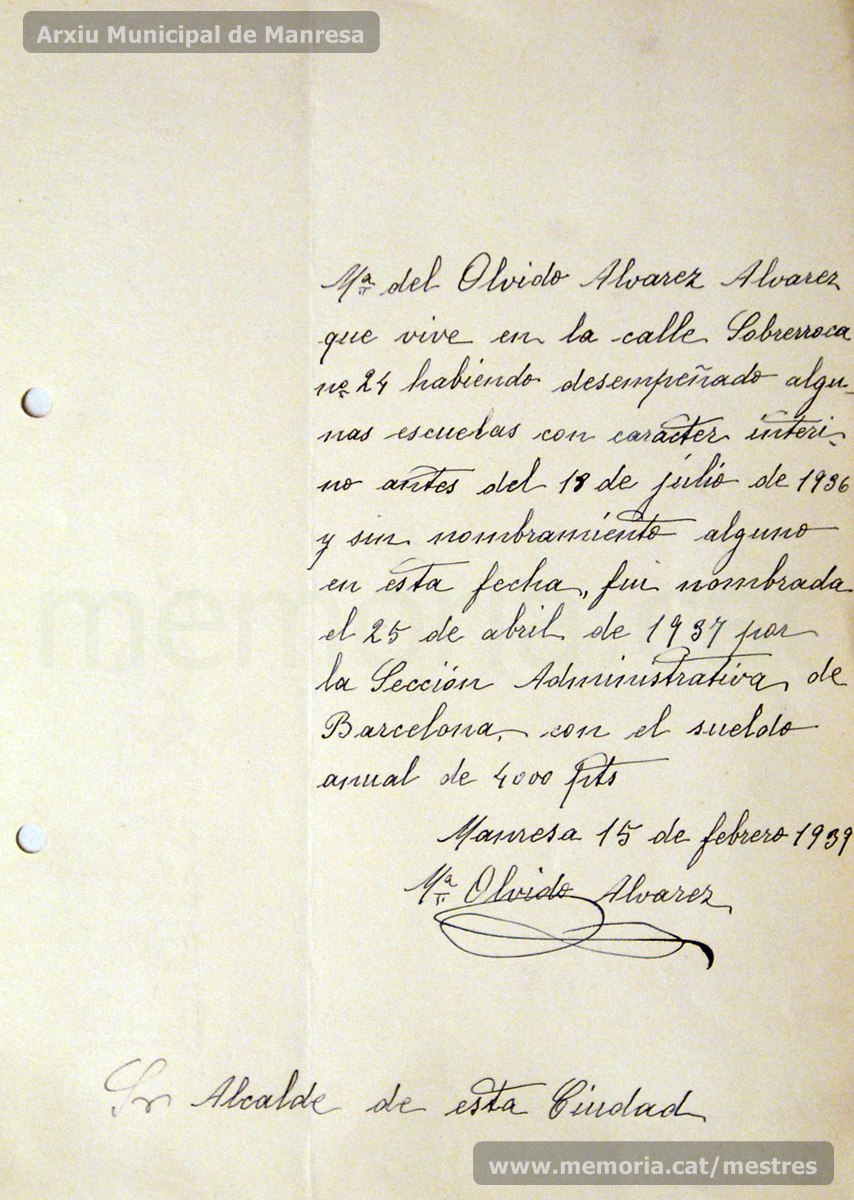 Arxiu Municipal de Manresa
Mª del Olvido Alvarez Alvarez
que vive en la calle Sobrerroca
nº 24 habiendo desempeñado algu-
nas escuelas con carácter interi-
no antes del 18 de julio de 1936
y sin nombramiento alguno
en esta fecha, fui nombrada
el 25 de abril de 1937 por
la Sección Administrativa de
Barcelona, con el sueldo
anual de 4000 pts
Manresa 15 de febrero 1939
Mª Olvido Alvarez
Sr Alcalde de esta Ciudad
www.memoria.cat/mestres